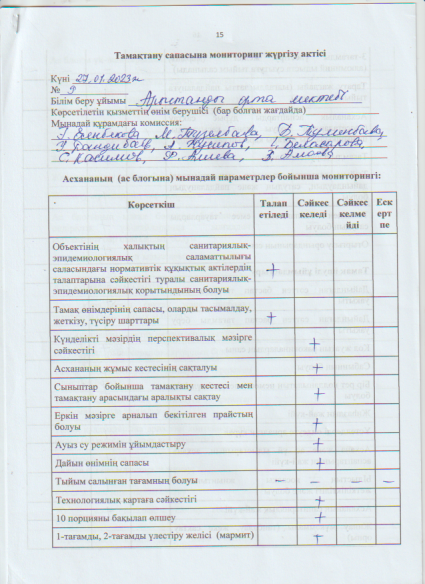 15
Тамақтану сапасына мониторинг жүргізу актісі
Күні 27.01.2023ж
№ 9
Білім беру ұйымы Арыстанды орта мектебі
Көрсетілетін қызметтің өнім берушісі (бар болған жағдайла)
Мынадай құрамдағы комиссия:
Асхананың (ас блогына) мынадай параметрлер бойынша мониторингі:
Көрсеткіш Талап етіледі Сәйкес келеді Сәйкес келмейді Ескертпе
Объектінің халықтың санитариялық-
эпидемиологиялық саламаттылығы
саласындағы нормативтік құқықтық актілердің
талаптарына сәйкестігі туралы санитариялық-
эпидемиологиялық қорытындының болуы +
Тамақ өнімдерінің сапасы, оларды тасымалдау,
жеткізу, түсіру шарттары +
Күнделікті мәзірдің перспективалық мәзірге
сәйкестігі +
Асхананың жұмыс кестесінің сақталуы +
Сыныптар бойынша тамақтану кестесі мен
тамақтану арасындағы аралықты сақтау +
Еркін мәзірге арналып бекітілген прайстың
болуы +
Ауыз су режимін ұйымдастыру +
Дайын өнімнің сапасы +
Тыйым салынған тағамның болуы - - - -
Технологиялық картаға сәйкестігі +
10 порцияны бақылап өлшеу +
1-тағамды, 2-тағамды үлестіру желісі (мармит) +